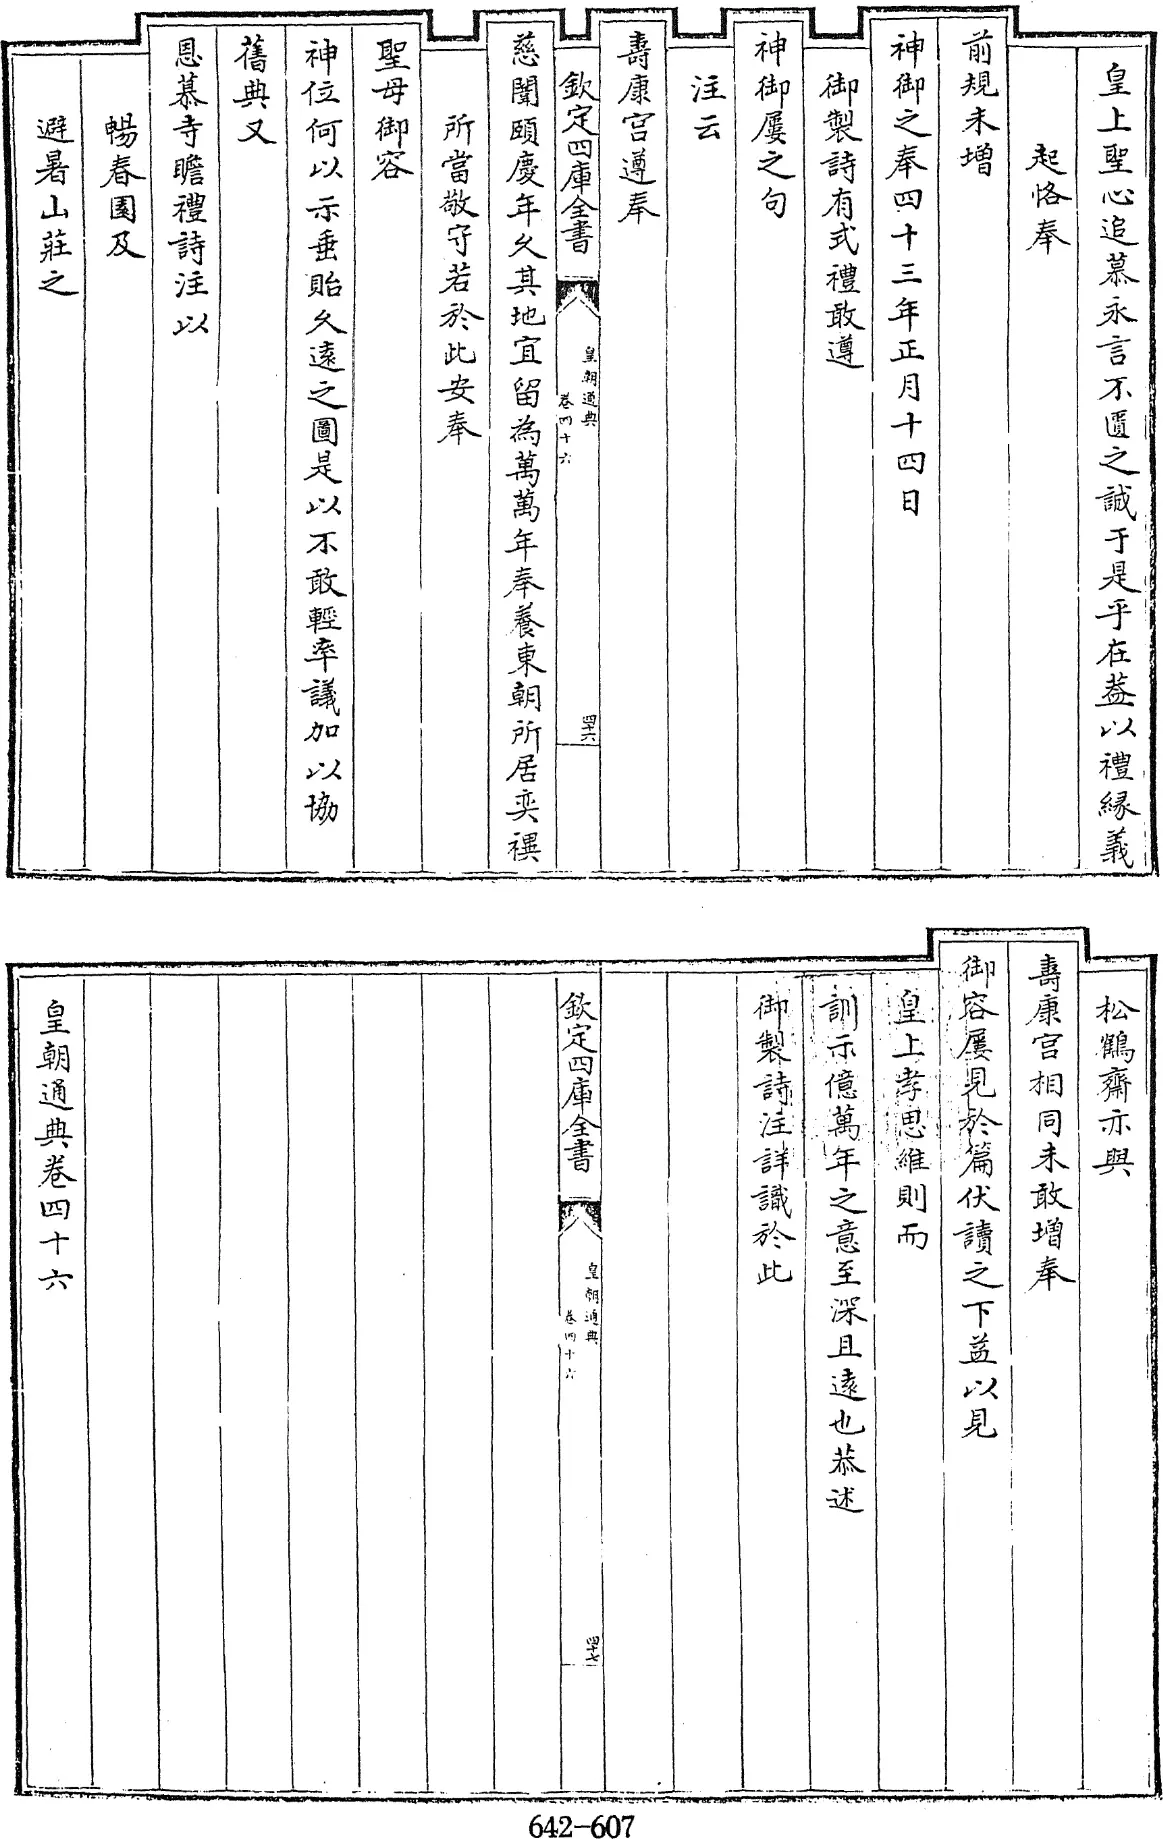 皇上聖心追慕永言不匱之誠于是乎在蓋以禮緣義
起恪奉
前規未增
神御之奉四十三年正月十四日
御製詩有式禮敢遵
神御屢之句
注云
壽康宮遵奉
欽定四庫全書
皇朝通典
卷四十六
四十六
慈闈頤慶年久其地宜留為萬萬年奉養東朝所居奕禩
所當敬守若於此安奉
聖母御容
神位何以示垂貽久遠之圖是以不敢輕率議加以協
舊典又
恩慕寺瞻禮詩注以
暢春園及
避暑山莊之
松鶴齋亦與
壽康宮相同未敢增奉
御容屢見於篇伏讀之下益以見
皇上孝思維則而
訓示億萬年之意至深且遠也恭述
御製詩注詳識於此
欽定四庫全書
皇朝通典
卷四十六
四十七
皇朝通典卷四十六
642-607